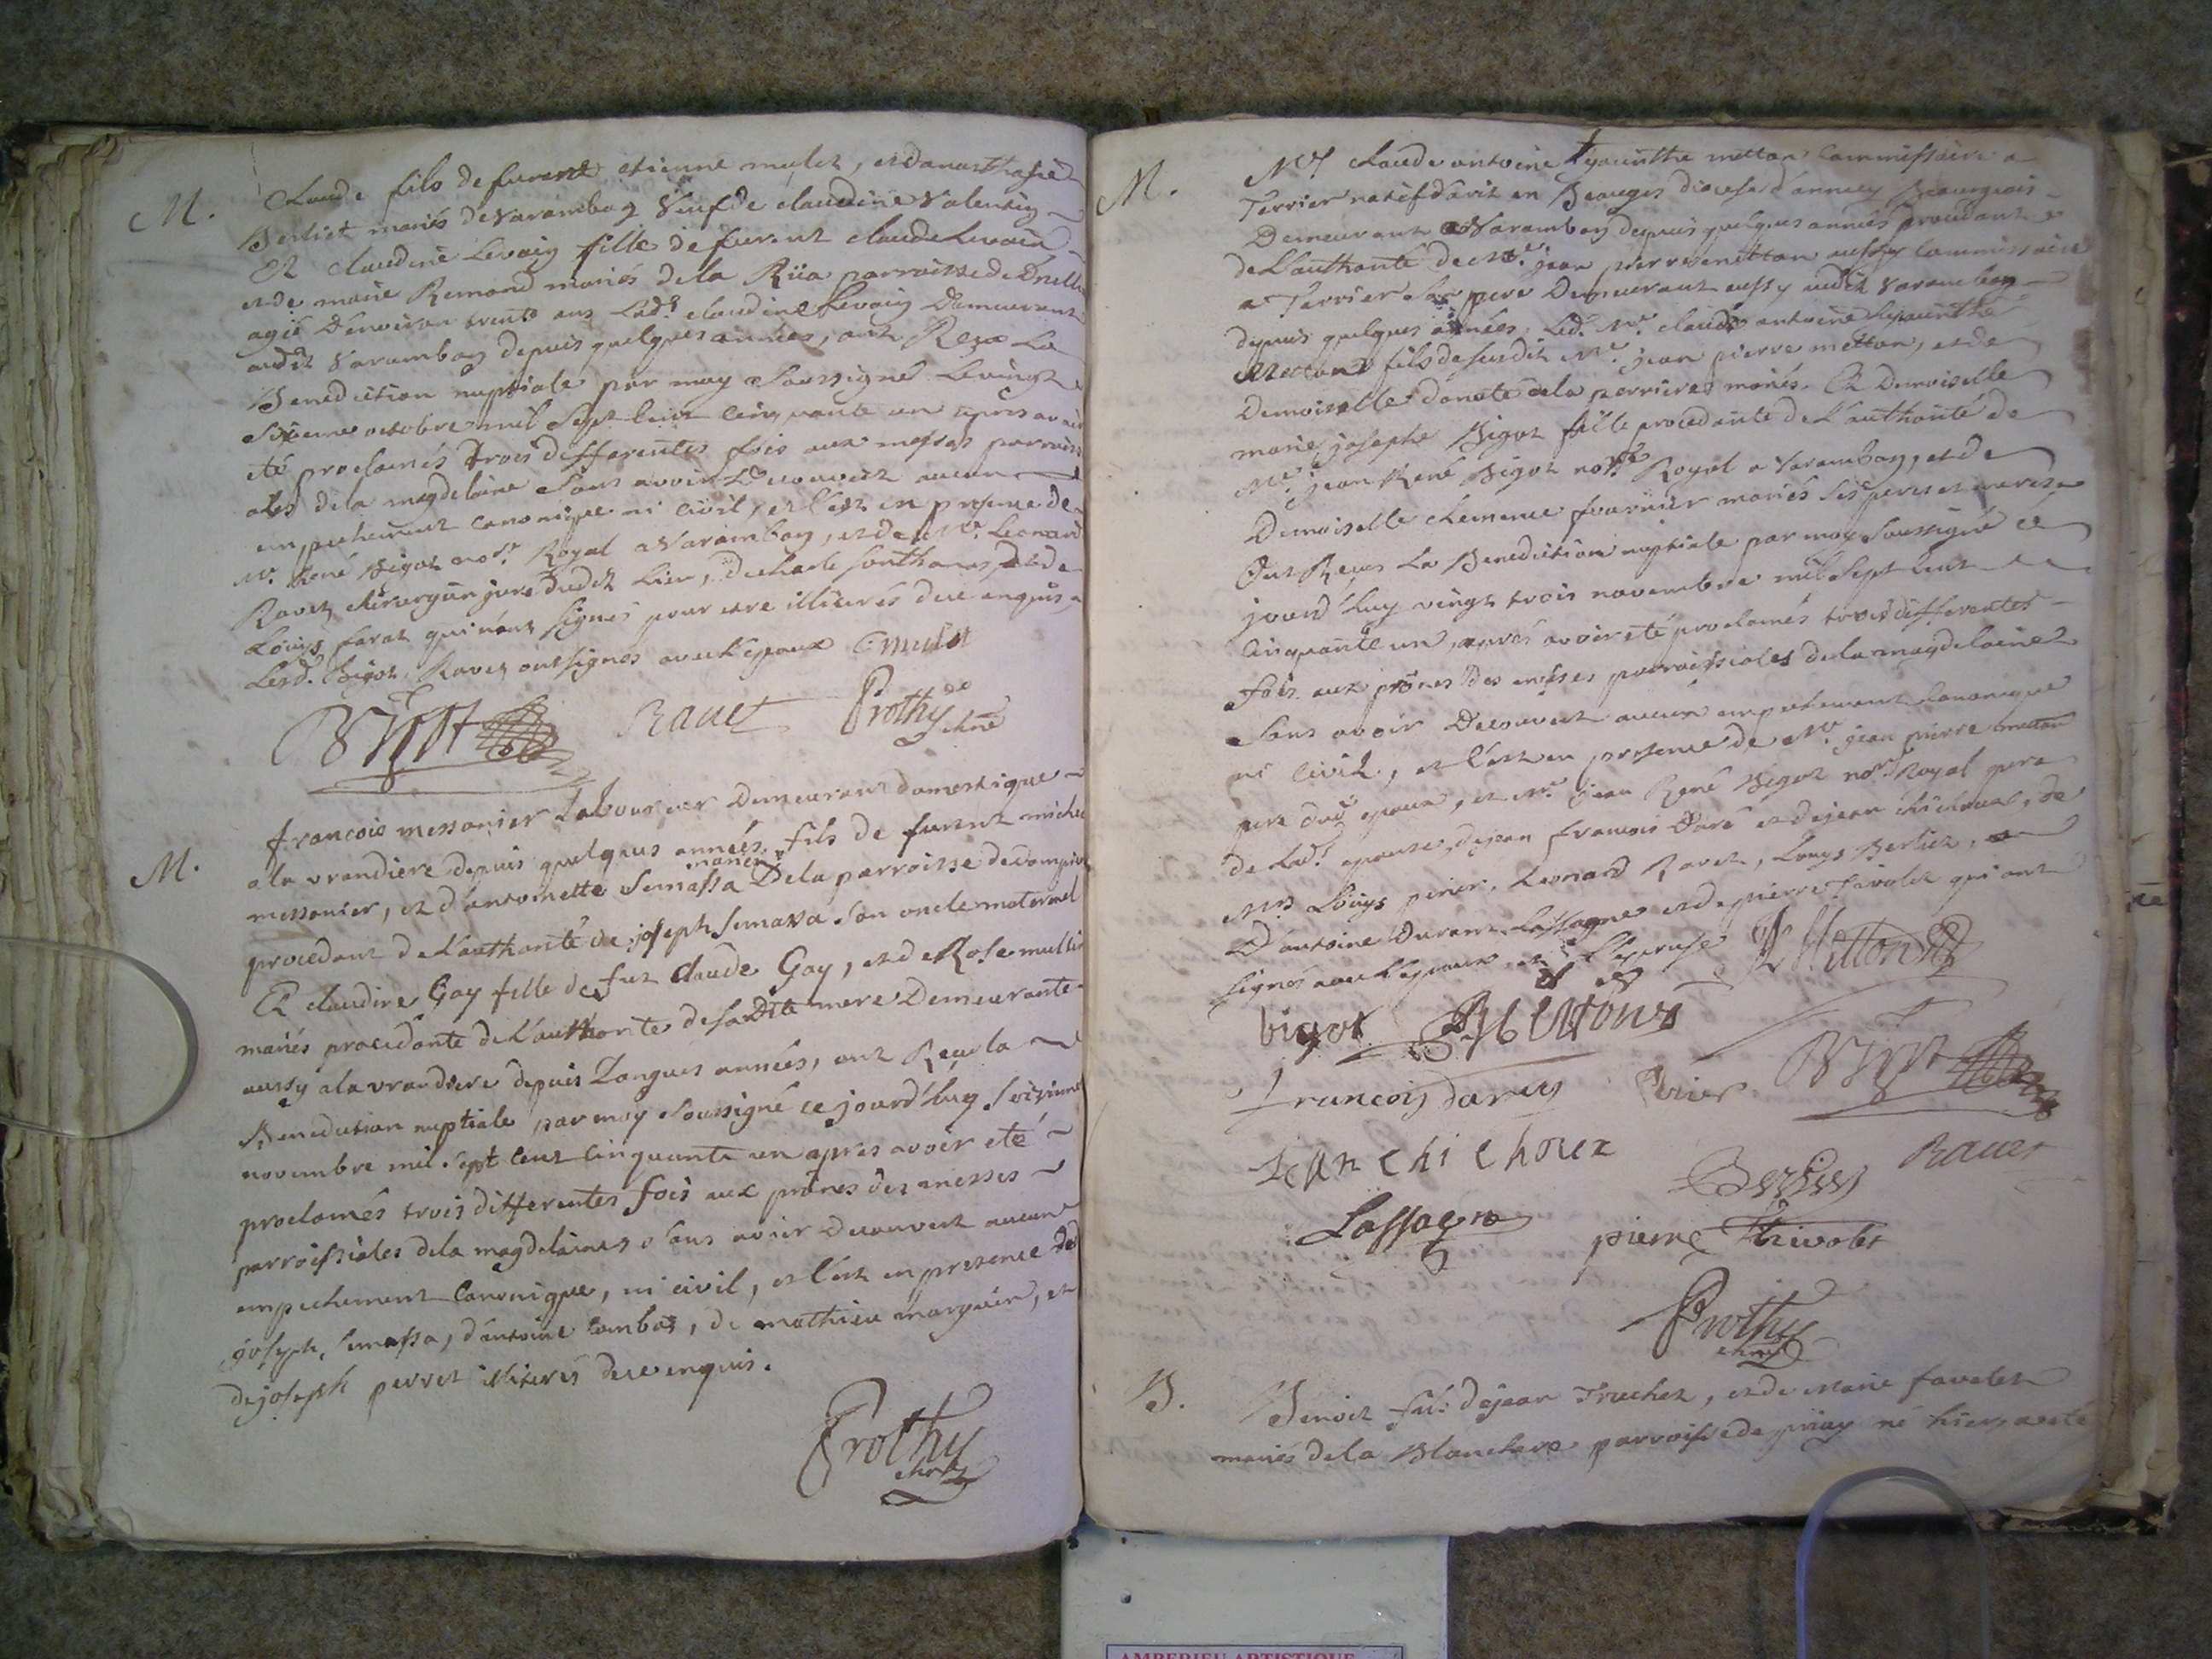 M.
Claude fils de furent etienne mulet, et d'anasthasie
Berliet mariés de Varambon Veuf de claudine Valentin
Et claudine Levaig fille de furent claude Levain
et de marie Remond mariés de la Rüa parroisse de
agie D'environ trente ans Lade. claudine Levaig Demeurant
audit Varambon depuis quelques années, ont Reçu La
Benediction nuptiale par moy Soussigné Le vingt
Sixieme octobre mil Sept Cent Cinquante un apres avoir
eté proclamés trois differentes fois aux messes parroiss
ales de la magdelaine Sans avoir Decouvert aucun
empechement canonique ni civil, et c'est en presence de
Me. René Bigot nore. Royal a Varambon, et de Me. Leonard
Ravet chirurgien juré Dudit Lieu, de et de
Loüys farat qui n'ont signés pour etre illiterés de ce enquis
Lesd. Bigot, Ravet ont signés avec l'epoux C mulet
Bigot Ravet Prothy
M.
francois messonier Laboureur Demeurant domestique
a la vrandiere depuis quelques années, fils de furent michel
mariés
messonier, et d'antoinette Semassa De la parroisse de
procedant de L'authorité de joseph Semassa Son oncle maternel
Et claudine Gay fille de fut claude Gay, et de Rose
mariés procedante de L'authorité de sadite mere Demeurante
aussy a la vrandiere depuis Longues années, ont Reçu la
Benediction nuptiale par moy Soussigné ce jourd'huy Seizieme
novembre mil Sept Cent Cinquante un apres avoir eté
proclamés trois differentes fois aux prônes des messes
parroissiales de la magdelaine Sans avoir Decouvert aucun
empechement Canonique, ni civil, et c'est en presence de
joseph Semassa, d'antoine Combet, de mathieu marguin, et
de joseph perret illiterés de ce enquis.
Prothy
M.
Me. claude antoine hyacinthe metton Commissaire a
Terrier natif d'arit en Beauges diocese d'annecy
Demeurant a Varambon depuis quelques années procedant
de L'authorité de Me. jean pierre metton aussy Commissaire
a Terrier Son pere Demeurant aussy audit Varambon
depuis quelques années, Led. Me. claude antoine hyacinthe
Metton fils de susdit Me. jean pierre metton, et de
Demoiselle donate de la perriere mariés. Et Demoiselle
marie josephe Bigot fille procedante de L'authorité de
Me. jean René Bigot nore. Royal a Varambon, et de
Demoiselle clemence fournier mariés Ses pere et mere
Ont Reçus La Benediction nuptiale par moy Soussigné ce
jourd'huy vingt trois novembre mil Sept Cent
Cinquante un, apres avoir eté proclamés trois differentes
fois aux prônes des messes parroissiales de la magdelaine
Sans avoir Decouvert aucun empechement Canonique
ni Civil, et c'est en presence de Me. jean pierre metton
pere dud epoux, et Me. jean René Bigot nore. Royal pere
de Lade. epouse, de jean francois et de jean, de
Mrs Loüys perier, Leonard Ravet, Louys Berliet,
D'antoine Durant Lassagne et de pierre Tivolet qui ont
signés avec l'epoux et L'epouse Metton
bigot Metton
francois darey Perier Bigot
Jean Chichoux Berliet Ravet
Lassagne pierre Thivolet
Prothy
B.
Benoit fils de jean Truchet, et de Marie favolet
mariés de la Blanchere parroisse de priay né hier, a eté
AMBERIEU ARTISTIQUE